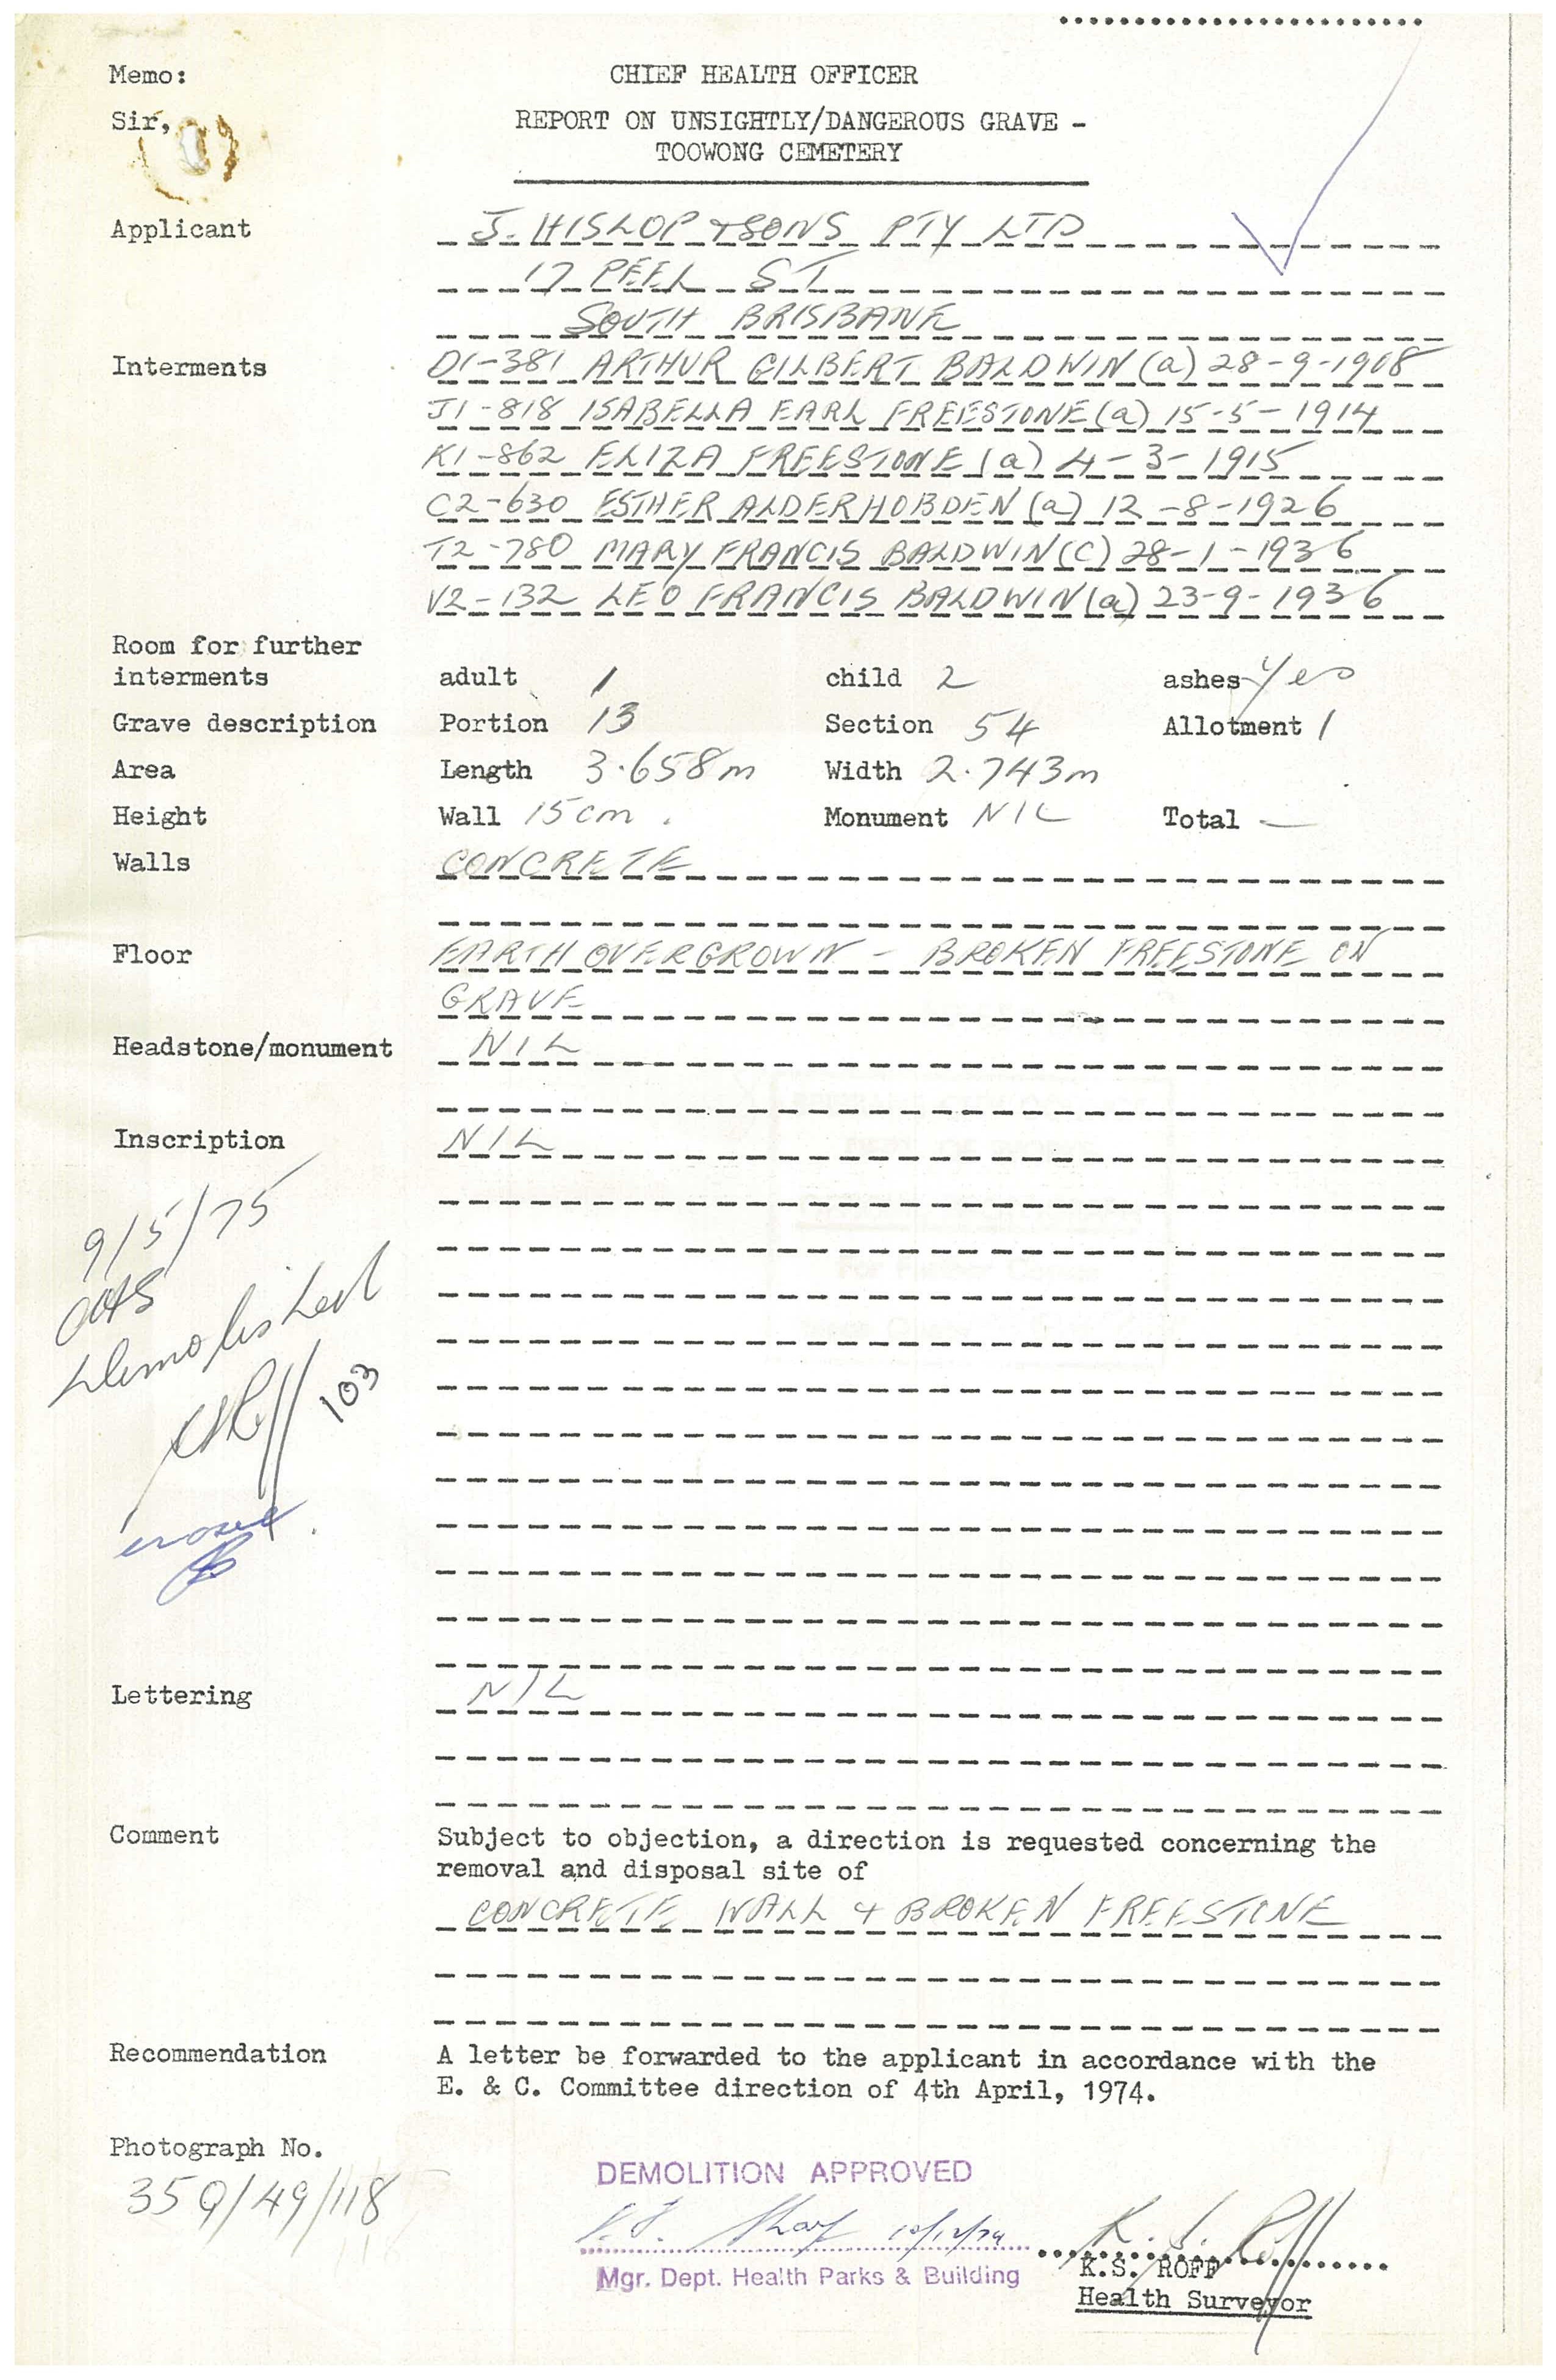 Memo: CHIEF HEALTH OFFICER
Sir, REPORT ON UNSIGHTLY/DANGEROUS GRAVE -
TOOWONG CEMETERY
Applicant J. HISLOP & SONS PTY LTD
17 PEEL ST
SOUTH BRISBANE
Interments D1-381 ARTHUR GILBERT BALDWIN (a) 28-9-1908
J1-818 ISABELLA EARL FREESTONE (a) 15-5-1914
K1-862 ELIZA FREESTONE (a) 4-3-1915
C2-630 ESTHER ALDERHOBDEN (a) 12-8-1926
T2-780 MARY FRANCIS BALDWIN (C) 28-1-1936
V2-132 LEO FRANCIS BALDWIN (a) 23-9-1936
Room for further
interments adult 1 child 2 ashes Yes
Grave description Portion 13 Section 54 Allotment 1
Area Length 3.658m Width 2.743m
Height Wall 15cm. Monument NIL Total —
Walls CONCRETE
Floor EARTH OVERGROWN - BROKEN FREESTONE ON
GRAVE
Headstone/monument NIL
Inscription NIL
9/5/75
Demolished
103
Lettering NIL
Comment Subject to objection, a direction is requested concerning the
removal and disposal site of
CONCRETE WALL & BROKEN FREESTONE
Recommendation A letter be forwarded to the applicant in accordance with the
E. & C. Committee direction of 4th April, 1974.
Photograph No.
35Q/49/118
DEMOLITION APPROVED
10/12/74 K. S. Roff
K.S. ROFF
Mgr. Dept. Health Parks & Building
Health Surveyor